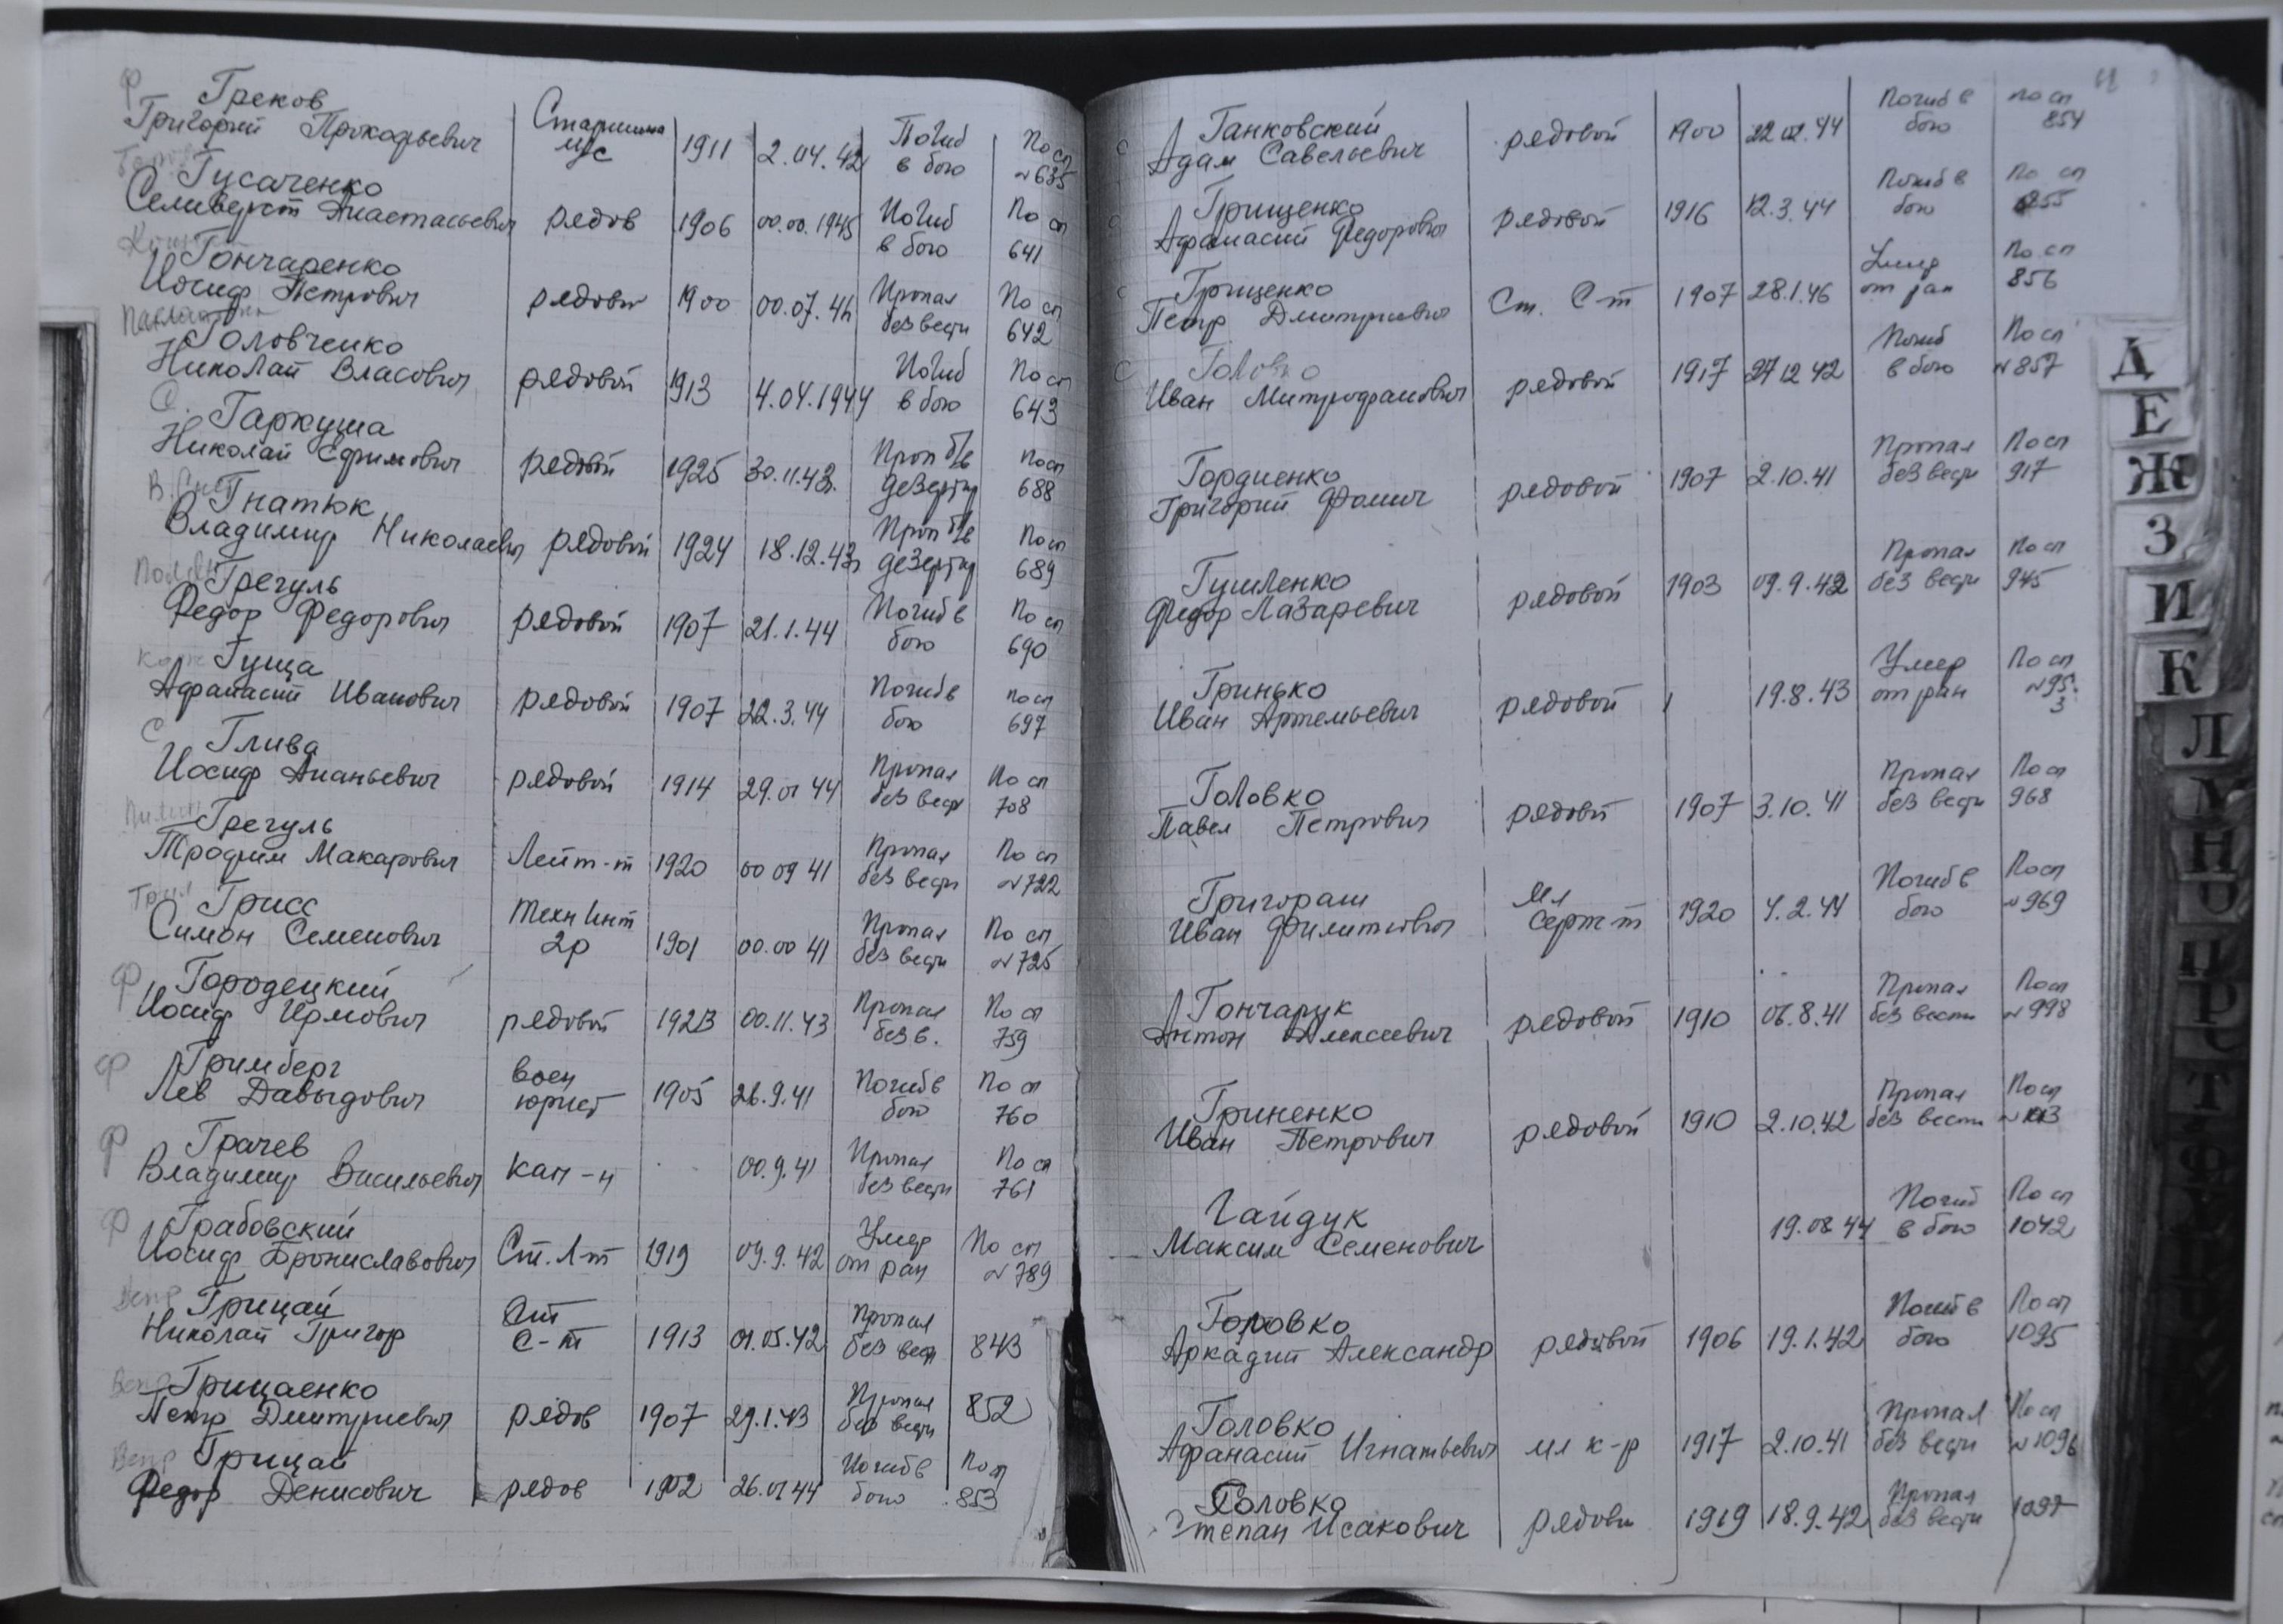 Греков
Григорий Прокофьевич Старшина м/с 1911 2.04.42 Погиб в бою По сп №635
Гусаченко
Селиверст Анастасьевич рядов 1906 00.00.1945 Погиб в бою По сп 641
Гончаренко
Иосиф Петрович рядовой 1900 00.07.44 Пропал без вести По сп 642
Головченко
Николай Власович рядовой 1913 4.04.1944 Погиб в бою По сп 643
Гаркуша
Николай Ефимович рядовой 1925 30.11.43 Проп б/в дезертир По сп 688
Гнатюк
Владимир Николаевич рядовой 1924 18.12.43 Проп б/в дезертир По сп 689
Грегуль
Федор Федорович рядовой 1907 21.1.44 Погиб в бою По сп 690
Гуща
Афанасий Иванович рядовой 1907 22.3.44 Погиб в бою По сп 697
Глива
Иосиф Ананьевич рядовой 1914 29.01 44 Пропал без вести По сп 708
Грегуль
Трофим Макарович Лейт-т 1920 00 09 41 Пропал без вести По сп №722
Грисс
Симон Семенович Техн Инт 2р 1901 00.00 41 Пропал без вести По сп №725
Городецкий
Иосиф Ирмович рядовой 1923 00.11.43 Пропал без в. По сп 759
Гримберг
Лев Давыдович воен юрист 1905 26.9.41 Погиб в бою По сп 760
Грачев
Владимир Васильевич кап-н 00.9.41 Пропал без вести По сп 761
Грабовский
Иосиф Брониславович Ст. л-т 1919 09.9.42 Умер от ран По сп №789
Грицай
Николай Григор Ст с-т 1913 01.05.42 Пропал без вести 843
Грицаенко
Петр Дмитриевич рядов 1907 29.1.43 Пропал без вести 852
Грицай
Федор Денисович рядов 1902 26.01 44 Погиб в бою По сп 853
Ганковский
Адам Савельевич рядовой 1900 22.02.44 Погиб в бою По сп 854
Грищенко
Афанасий Федорович рядовой 1916 12.3.44 Погиб в бою По сп 855
Грищенко
Петр Дмитриевич Ст. С-т 1907 28.1.46 Умер от ран По сп 856
Головко
Иван Митрофанович рядовой 1917 27 12 42 Погиб в бою По сп №857
Гордиенко
Григорий Фомич рядовой 1907 2.10.41 Пропал без вести По сп 917
Гушленко
Федор Лазаревич рядовой 1903 09.9.42 Пропал без вести По сп 945
Гринько
Иван Артемьевич рядовой 19.8.43 Умер от ран По сп №953
Головко
Павел Петрович рядовой 1907 3.10.41 Пропал без вести По сп 968
Григораш
Иван Филиппович Мл Серж-т 1920 4.2.44 Погиб в бою По сп №969
Гончарук
Антон Алексеевич рядовой 1910 06.8.41 Пропал без вести По сп №998
Гриненко
Иван Петрович рядовой 1910 2.10.42 Пропал без вести По сп
Гайдук
Максим Семенович 19.08 44 Погиб в бою По сп 1042
Головко
Аркадий Александр рядовой 1906 19.1.42 Погиб в бою По сп 1095
Головко
Афанасий Игнатьевич мл к-р 1917 2.10.41 Пропал без вести По сп №1096
Головко
Степан Исакович рядовой 1919 18.9.42 Пропал без вести 1097
Д
Е
Ж
З
И
К
Л
М
Н
О
П
Р
С
Т